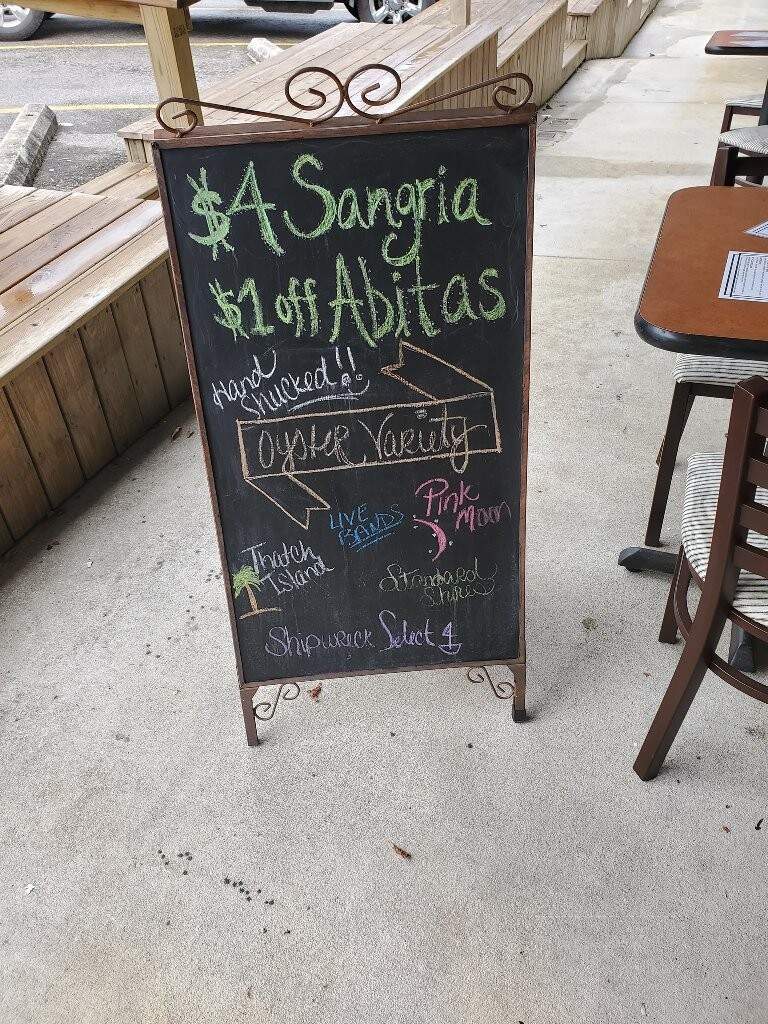 $4 Sangria
$1 off Abitas
Hand
Shucked!!
Oyster Variety
LIVE
BANDS
Pink
Moon
Thatch
Island
Standard
Shipwreck Select